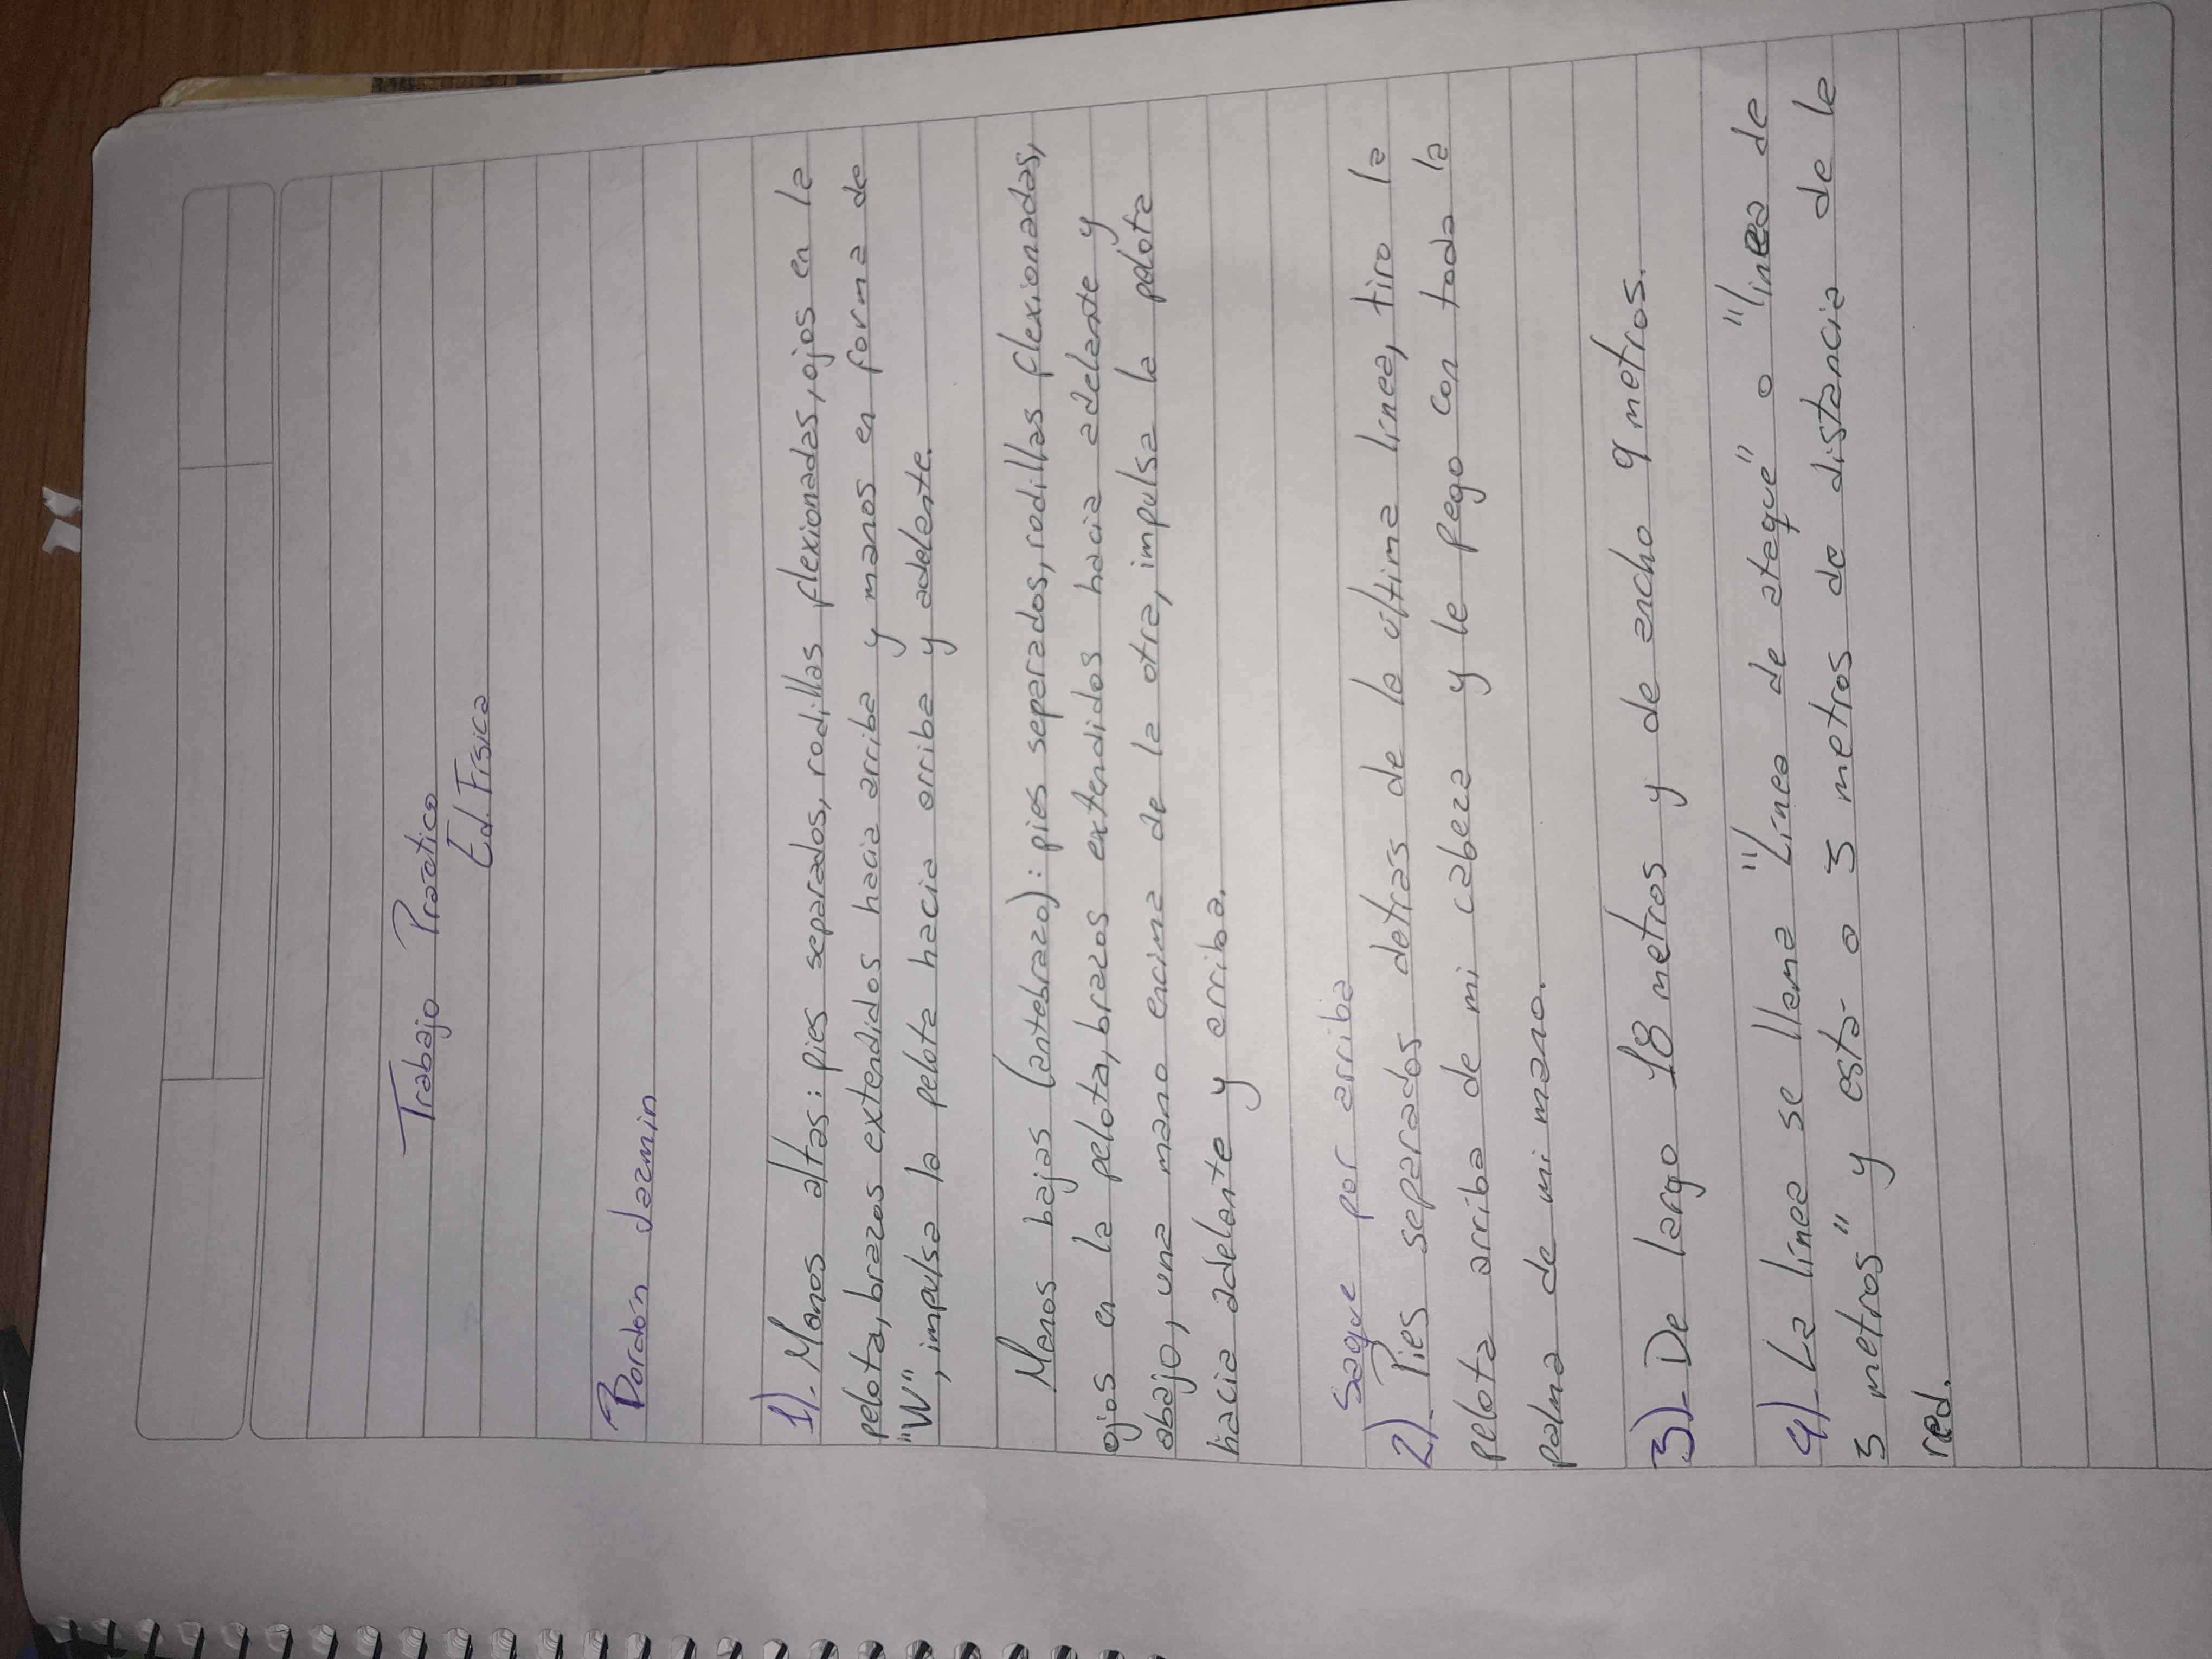 Trabajo Práctico
Ed. Física
Bordón Jazmin
1)- Manos altas: pies separados, rodillas flexionadas, ojos en la
pelota, brazos extendidos hacia arriba y manos en forma de
"W", impulsa la pelota hacia arriba y adelante.
Manos bajas (antebrazo): pies separados, rodillas flexionadas,
ojos en la pelota, brazos extendidos hacia adelante y
abajo, una mano encima de la otra, impulsa la pelota
hacia adelante y arriba.
Saque por arriba
2)- Pies separados detras de la última línea, tiro la
pelota arriba de mi cabeza y le pego con toda la
palma de mi mano.
3)- De largo 18 metros y de ancho 9 metros.
4)- La línea se llama "Línea de ataque" o "línea de
3 metros" y esta a 3 metros de distancia de la
red.